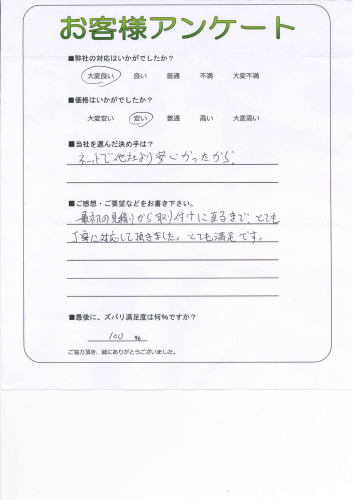 お客様アンケート
■弊社の対応はいかがでしたか?
大変良い 良い 普通 不満 大変不満
■価格はいかがでしたか?
大変安い 安い 普通 高い 大変高い
■当社を選んだ決め手は?
ネットで他社より安かったから。
■ご感想・ご要望などをお書き下さい。
最初の見積りから取り付けに至るまで、とても
丁寧に対応して頂きました。とても満足です。
■最後に、ズバリ満足度は何%ですか?
100 %
ご協力頂き、誠にありがとうございました。